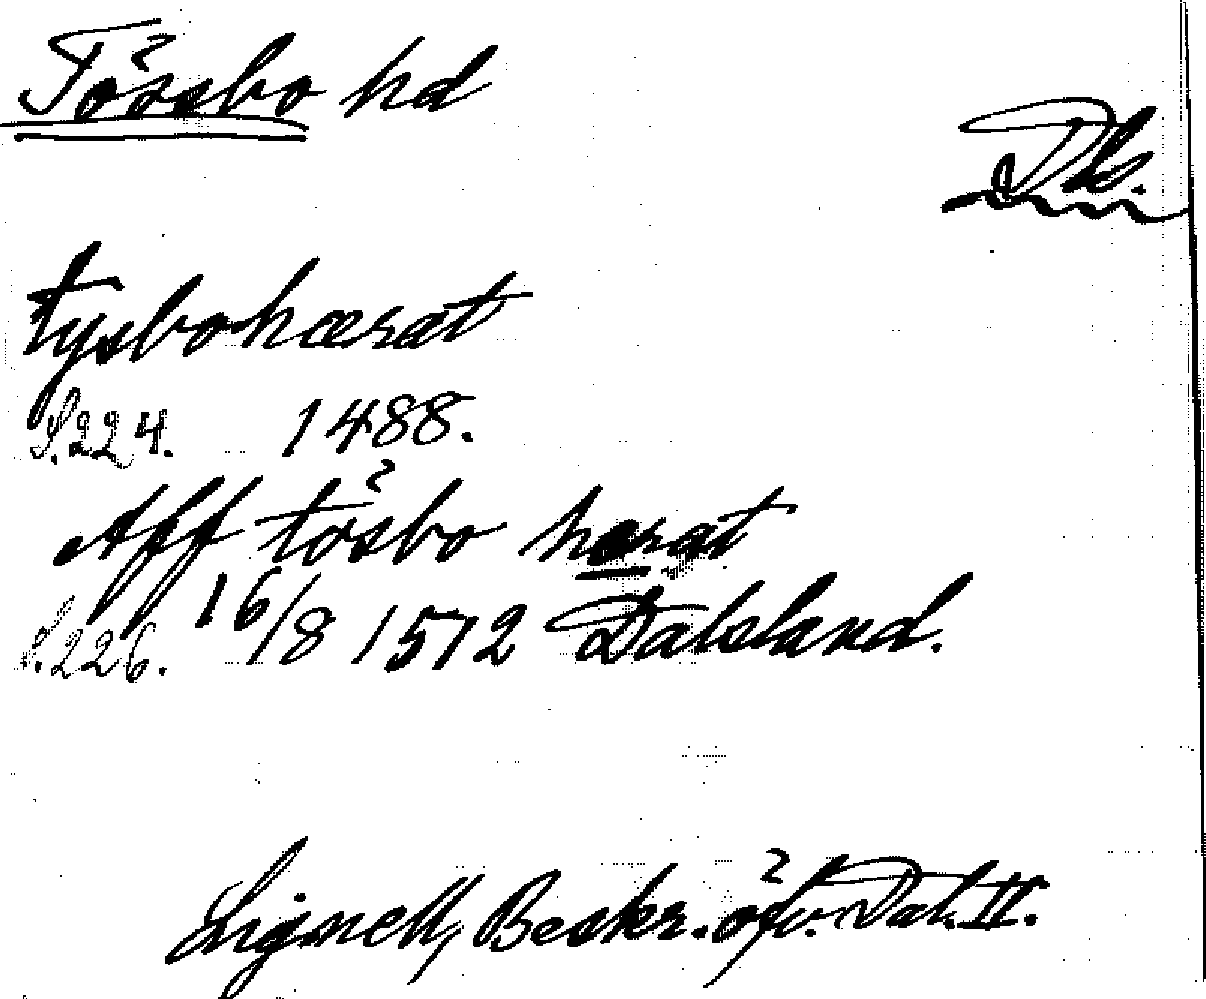 Tössbo hd
Dls.
tysbohærat
S. 224. 1488.
Aff tösbo hærat
S. 226. 16/8 1572 Dalsland.
Lignell, Beskr. öfv. Dal. II.